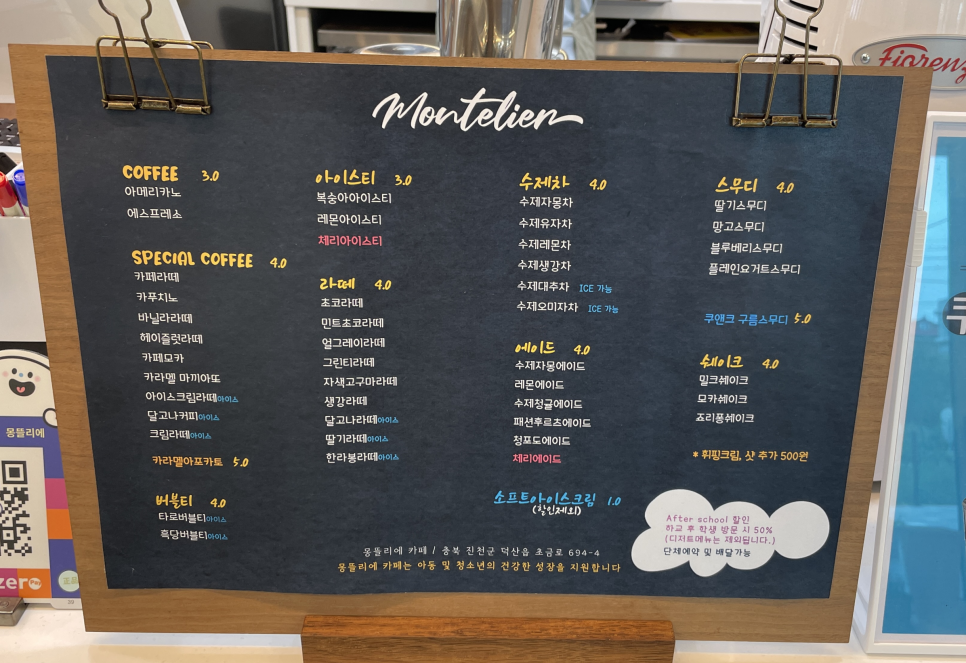 Montelier
COFFEE 3.0
아메리카노
에스프레소
SPECIAL COFFEE 4.0
카페라떼
카푸치노
바닐라라떼
헤이즐럿라떼
카페모카
카라멜 마끼아또
아이스크림라떼아이스
달고나커피아이스
크림라떼아이스
카라멜아포카토 5.0
버블티 4.0
타로버블티아이스
흑당버블티아이스
아이스티 3.0
복숭아아이스티
레몬아이스티
체리아이스티
라떼 4.0
초코라떼
민트초코라떼
얼그레이라떼
그린티라떼
자색고구마라떼
생강라떼
달고나라떼아이스
딸기라떼아이스
한라봉라떼아이스
수제차 4.0
수제자몽차
수제유자차
수제레몬차
수제생강차
수제대추차 ICE 가능
수제오미자차 ICE 가능
에이드 4.0
수제자몽에이드
레몬에이드
수제청귤에이드
패션후르츠에이드
청포도에이드
체리에이드
소프트아이스크림 1.0
(할인제외)
스무디 4.0
딸기스무디
망고스무디
블루베리스무디
플레인요거트스무디
쿠앤크 구름스무디 5.0
쉐이크 4.0
밀크쉐이크
모카쉐이크
죠리퐁쉐이크
* 휘핑크림, 샷 추가 500원
After school 할인
하교 후 학생 방문 시 50%
(디저트메뉴는 제외됩니다.)
단체예약 및 배달가능
몽뜰리에 카페 / 충북 진천군 덕산읍 초금로 694-4
몽뜰리에 카페는 아동 및 청소년의 건강한 성장을 지원합니다
몽뜰리에
zero
Fiorenz
쿠